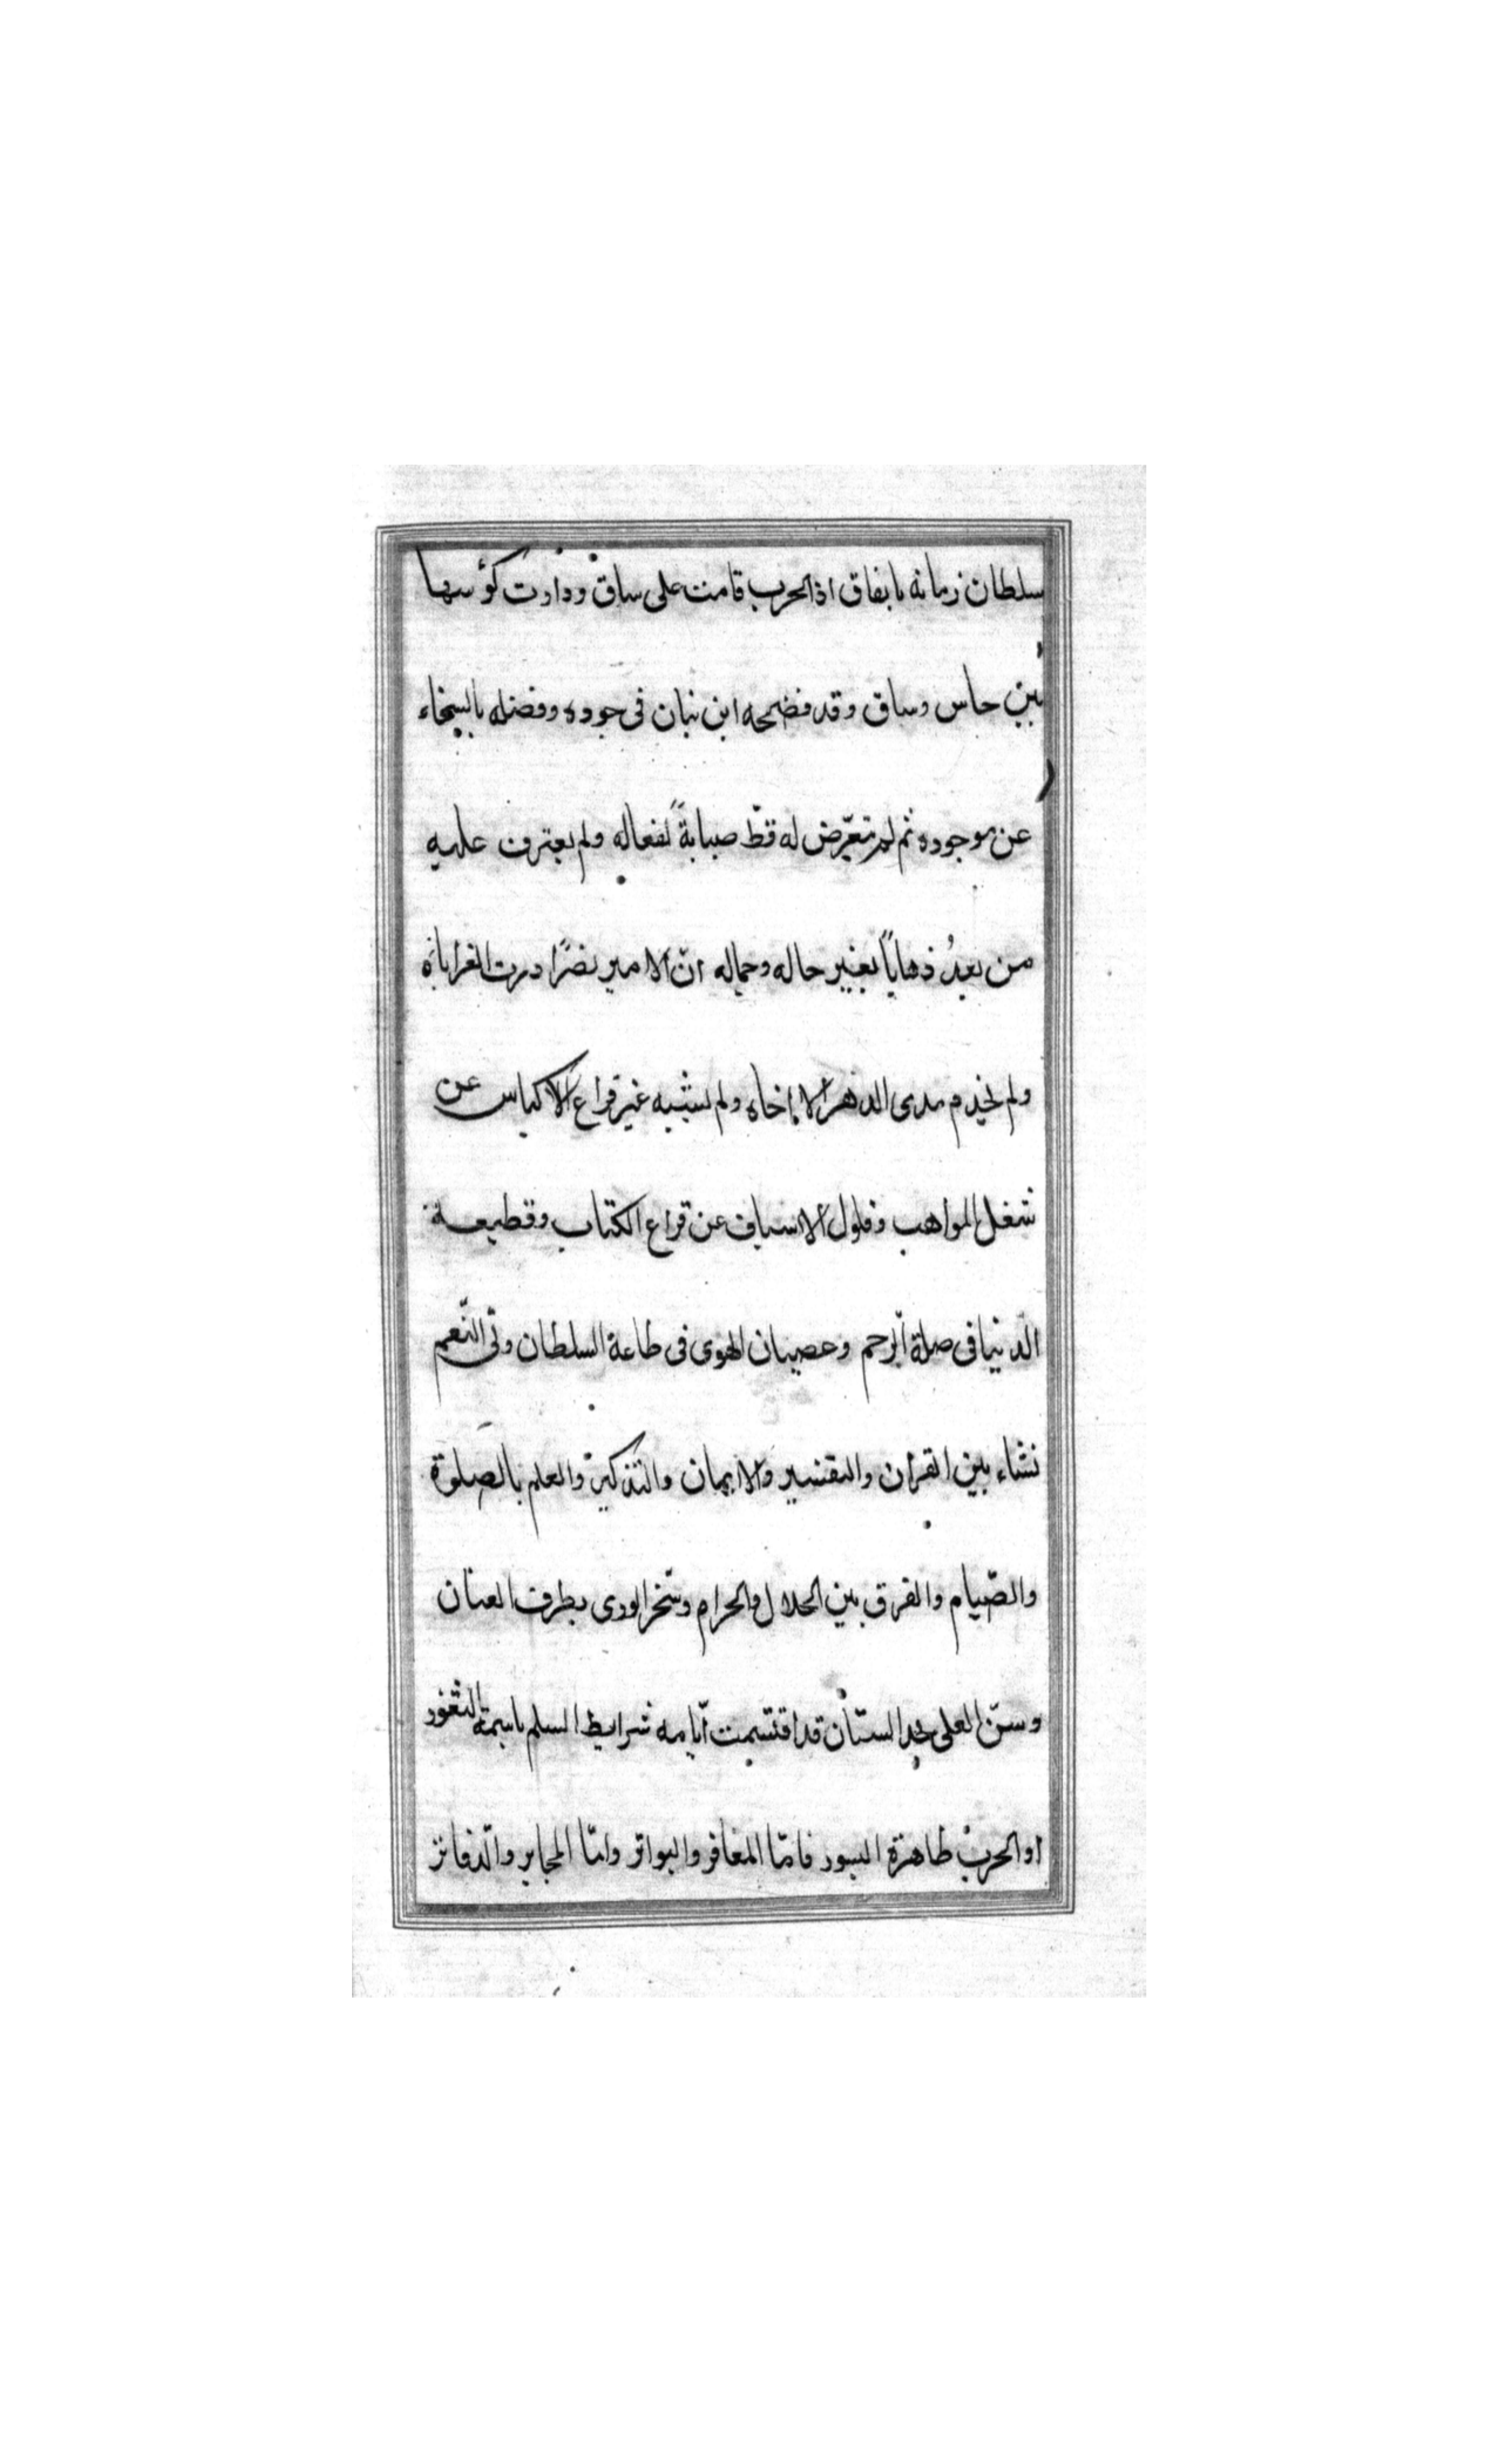 سلطان زمانه بانفاق اذا لحرب قامت على ساق ودارت كؤسها
بين حاس وساق وقد فضحه ابن نبان فى جوده وفضله بالسخاء
عن موجوده ثم لم يتعرّض له قطّ صبابةً لفعاله ولم يعترف عليه
من بعدُ ذهابًا بغير حاله وجماله انّ الامير نصرًا درت
ولم يخدم مدى الدهر الا اخاه ولم يشبه غير قراع الاكياس عن
شغل المواهب وفلول الاسياف عن قراع الكتاب وقطيعة
الدنيا فى صلة الرحم وعصيان الهوى فى طاعة السلطان ولىّ النّعم
نشاء بين القران والتفسير والايمان والتذكير والعلم بالصلوة
والصّيام والفرق بين الحلال والحرام وسّخر الورى بطرف العنان
وسنّ العلى بحد السنان قد اقتسمت ايّامه شرايط السلم باسمة الثغور
او الحرب ظاهرة السور فامّا المغافر والبواتر وامّا المحابر والدّفاتر